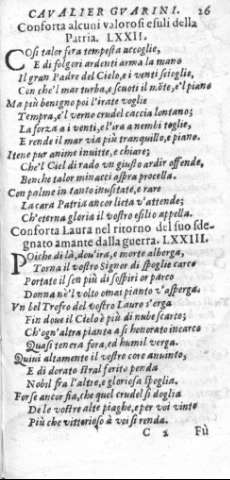 CAVALIER GVARINI. 26
Conforta alcuni valorosi esuli della
Patria. LXXII.
COsì talor fera tempesta accoglie,
E di folgori ardenti arma la mano
Il gran Padre del Cielo, e i venti scioglie,
Con che'l mar turba, e scuoti il mõte, e'l piano
Ma più benigno poi l'irate voglie
Tempra, e'l verno crudel caccia lontano;
La forza a i venti, e l'ira a nembi toglie,
E rende il mar via più tranquillo, e piano.
Itene pur anime inuitte, e chiare;
Che'l Ciel di rado un giusto ardir offende,
Benche talor minacci aspra procella.
Con palme in tanto inusitate, e rare
La cara Patria ancor lieta v'attende;
Ch'eterna gloria il vostro esilio appella.
Conforta Laura nel ritorno del suo sde-
gnato amante dalla guerra. LXXIII.
POiche di là, dou'ira, e morte alberga,
Torna il vostro Signor di spoglie carco
Portato il sen più di sospiri or parco
Donna n'è'l volto omai pianto v'asperga.
Vn bel Trofeo del vostro Lauro s'erga
Fin doue il Cielo è più di nube scarco;
Ch'ogn'altra pianta a sì honorato incarco
Quasi tenera fora, ed humil verga.
Quini altamente il vostro core auuinto,
E di dorato stral ferito penda
Nobil fra l'altre, e gloriosa spoglia.
Forse ancor fia, che quel crudel si doglia
De le vostre alte piaghe, e per voi vinto
Più che vittorioso à voi si renda.
C 2 Fù